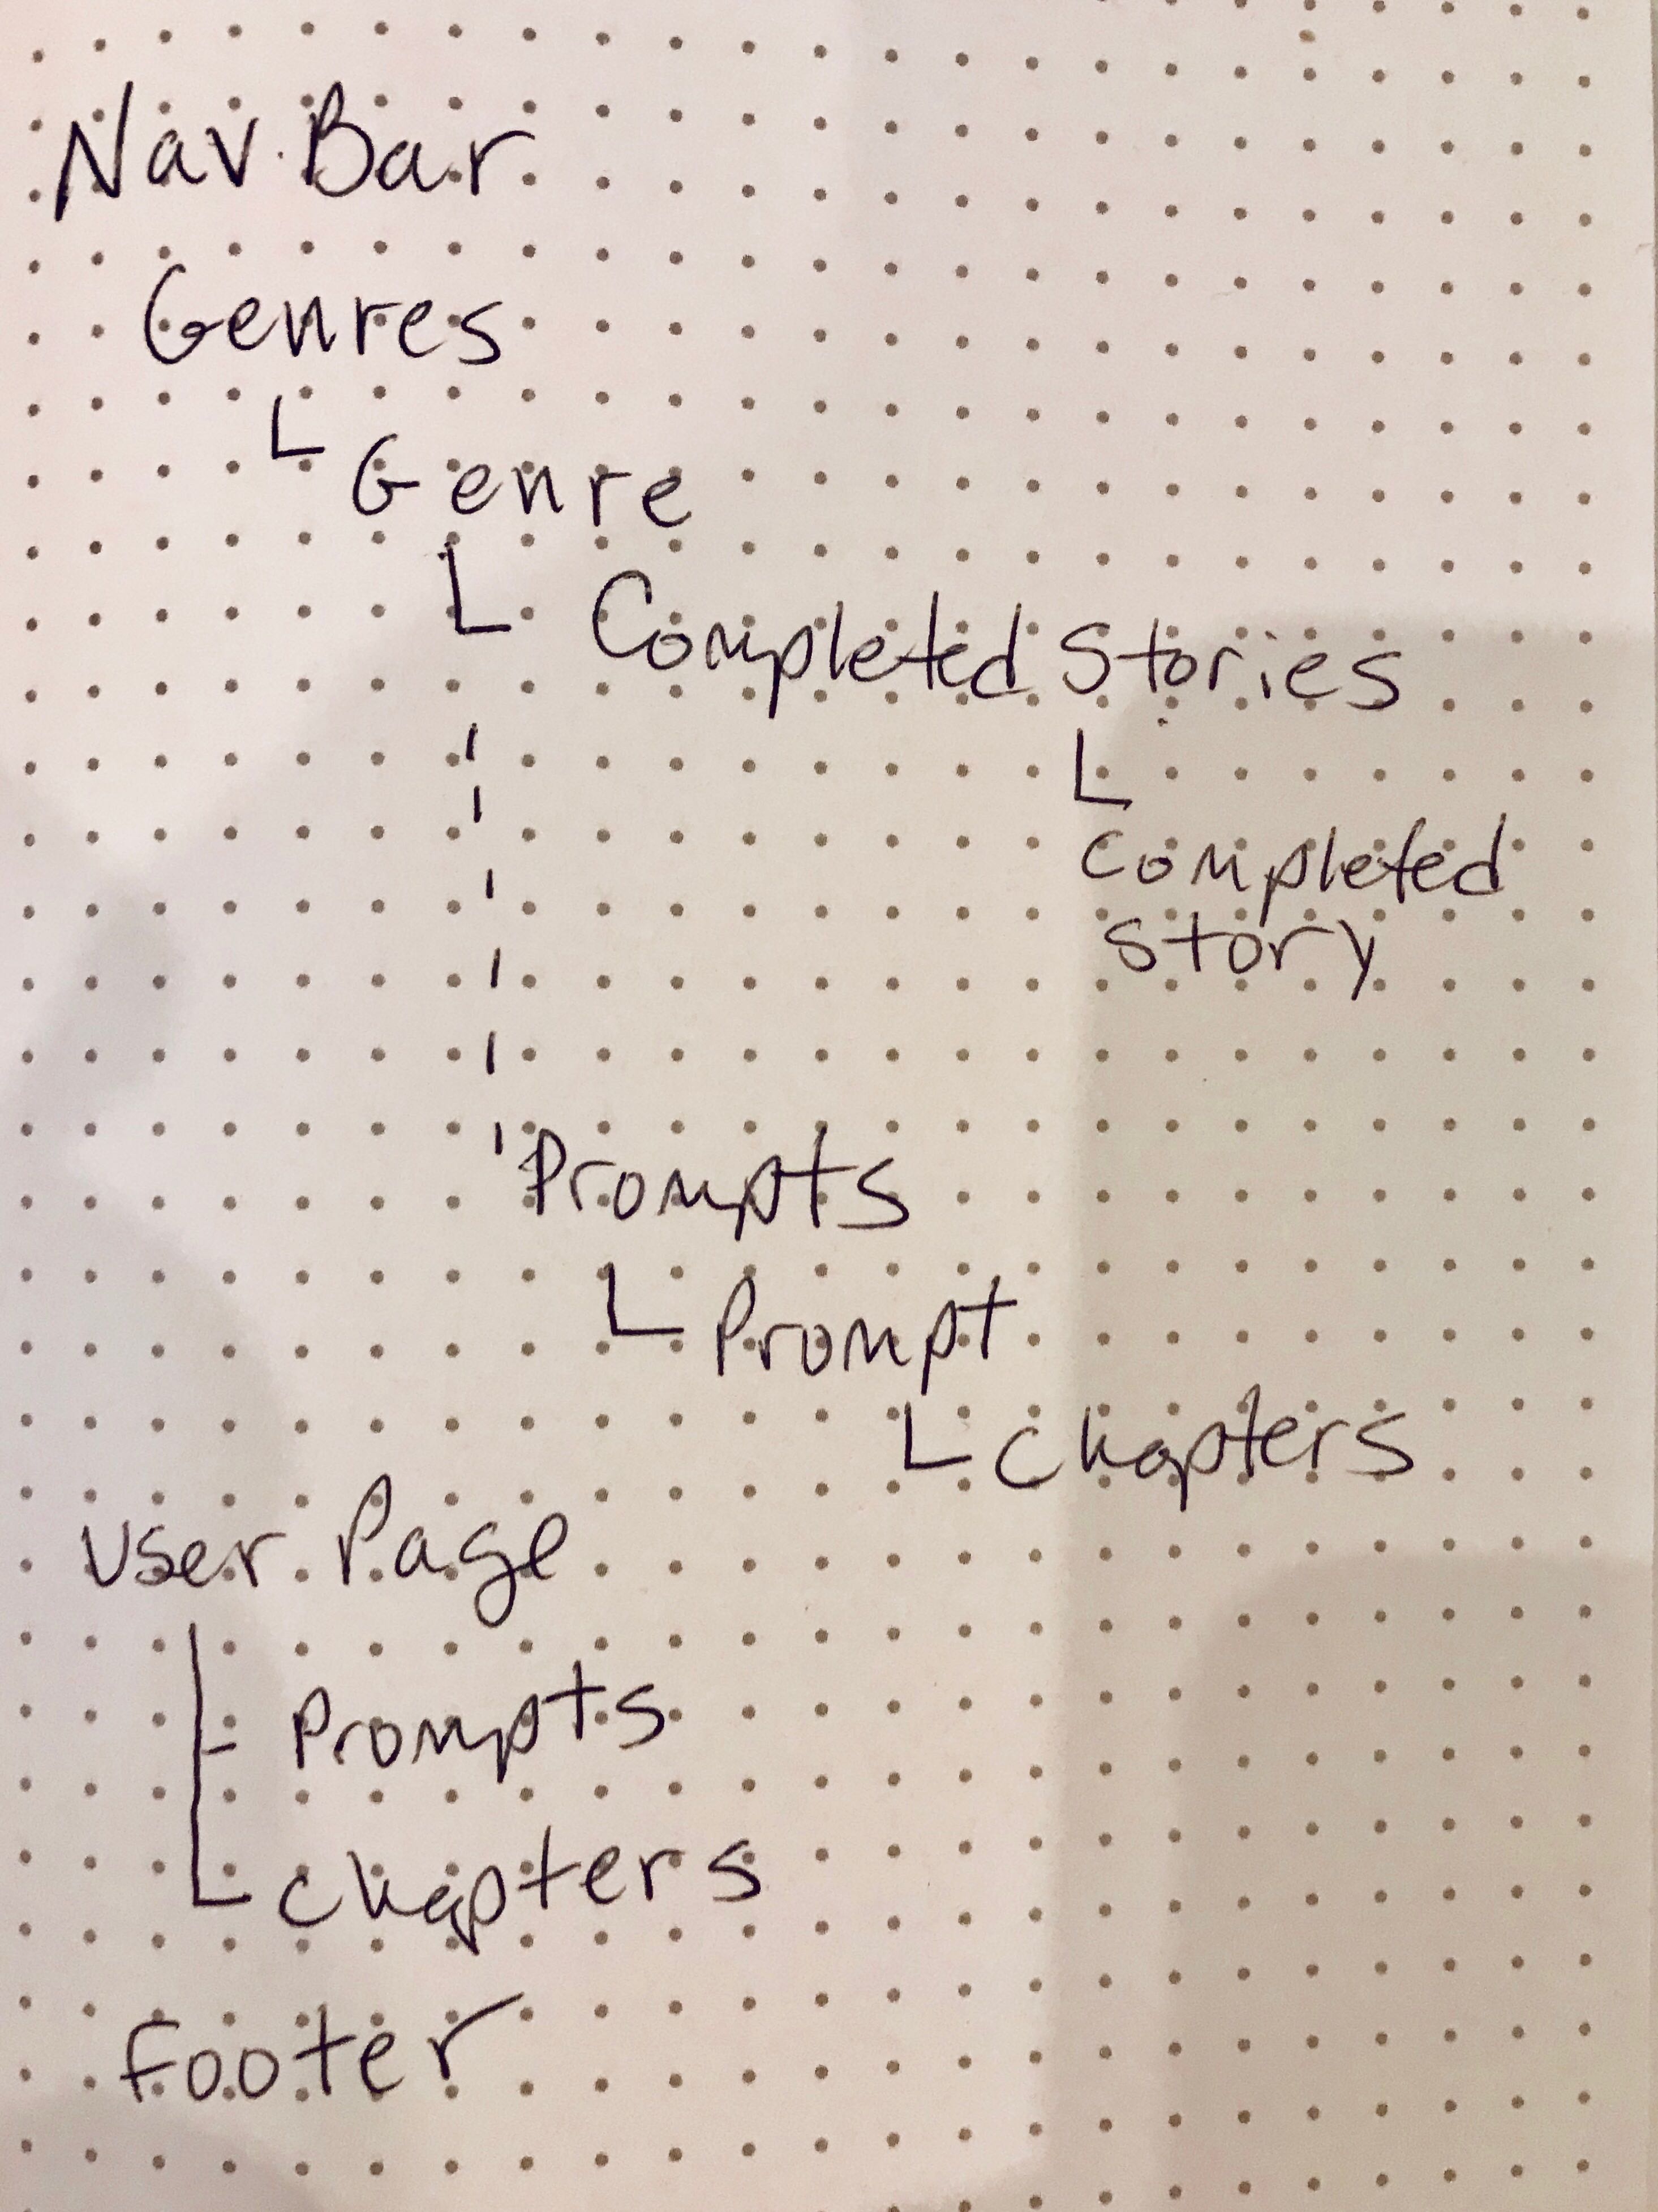 Nav Bar
Genres
Genre
Completed Stories
Completed
Story
Prompts
Prompt
Chapters
User Page
Prompts
Chapters
Footer